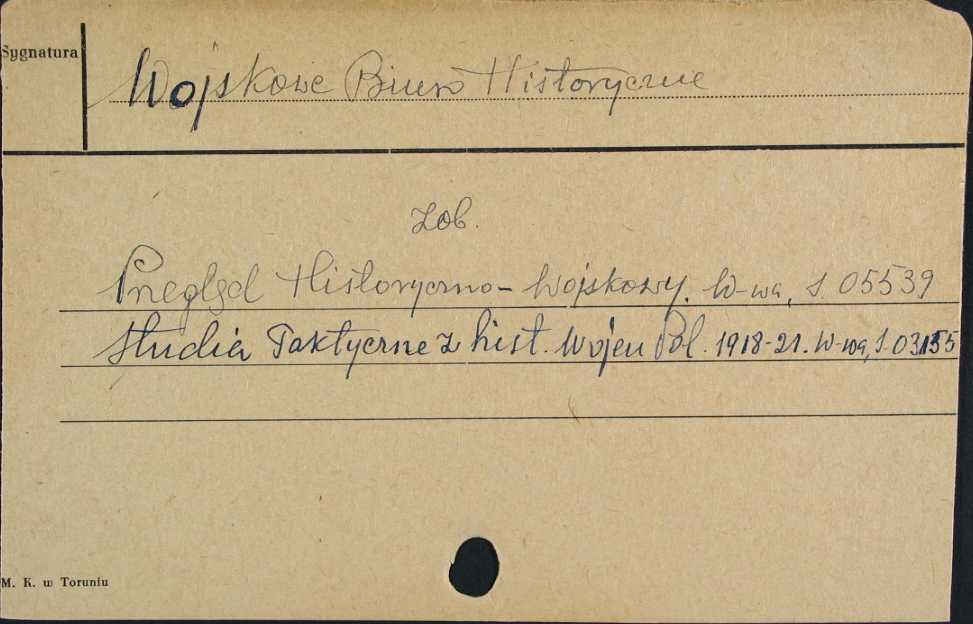 Sygnatura
Wojskowe Biuro Historyczne
zob.
Przegląd Historyczno-Wojskowy. W-wa, S. 05539
Studia Taktyczne z hist. Wojen Pol. 1918-21. W-wa, S. 03155
M. K. w Toruniu